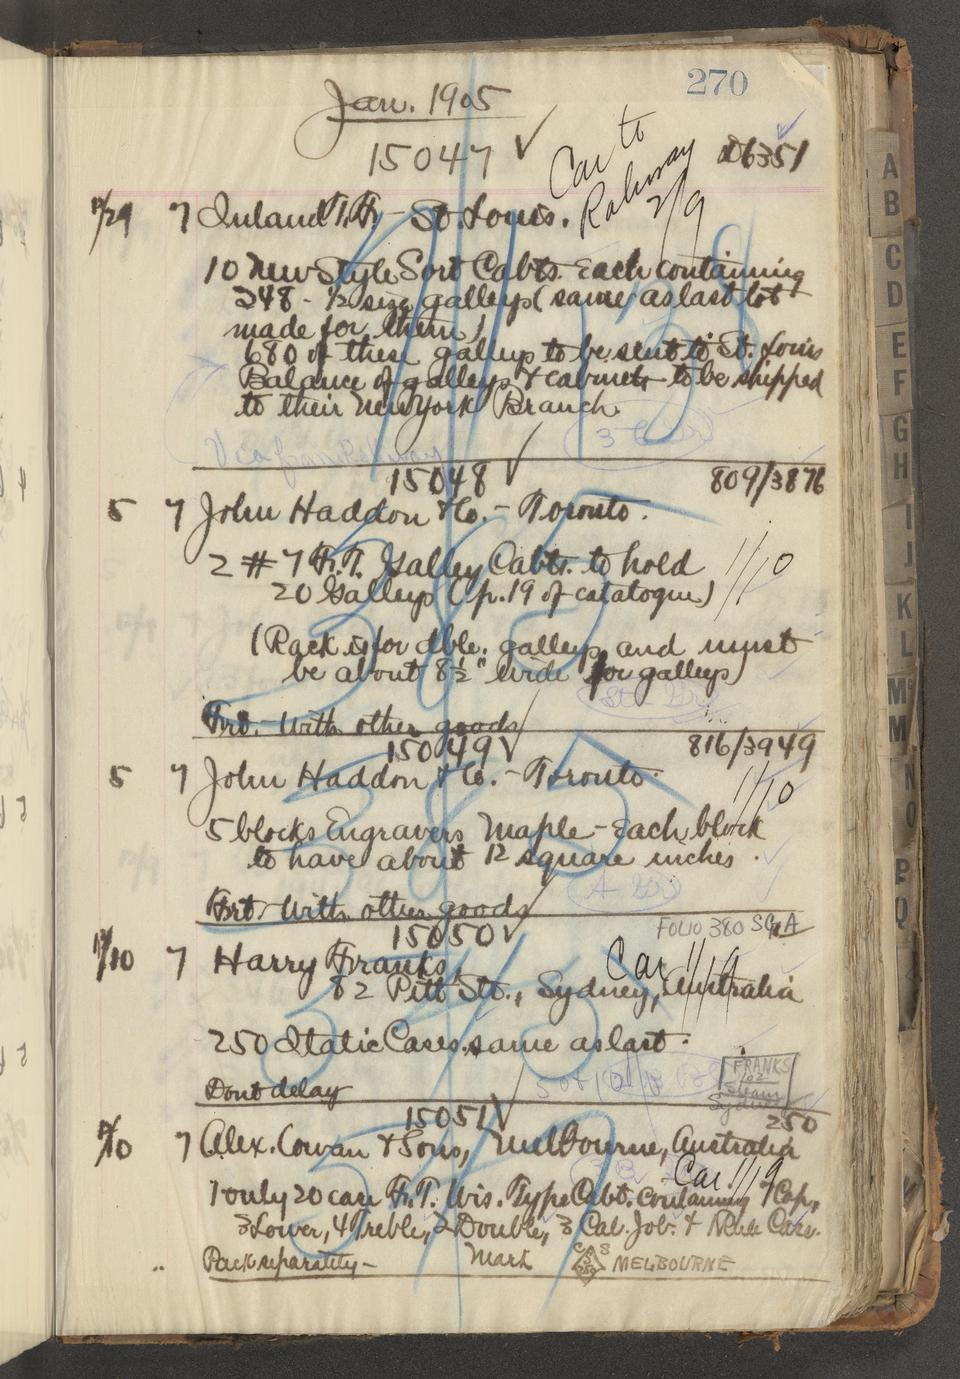 270
Jan. 1905
15047 ✓
Car to
Rahway
2/9
D6351
12/29 7 Inland T. Fy - St. Louis.
10 New Style Sort Cabts. Each containing
248 - 1/2 size galleys (same as last lot
made for them)
680 of these galleys to be sent to St. Louis
Balance of galleys & cabinets to be shipped
to their New York Branch.
15048 ✓
809/3876
5 7 John Haddon & Co. - Toronto.
2 # 7 F.T. Galley Cabts. to hold
20 Galleys (p. 19 of catalogue)
1/10
(Rack is for dble. galleys and must
be about 8 1/2" wide for galleys)
Frt. - With other goods
15049 ✓
816/3949
5 7 John Haddon & Co. - Toronto.
1/10
5 blocks Engravers Maple - Each block
to have about 12 square inches.
Frt. With other goods
15050 ✓
FOLIO 380 SG. A
7 Harry Franks,
Car 1/19
82 Pitt St., Sydney, Australia
250 Italic Cases, same as last.
Dont delay
FRANKS
102
Sydney
250
15051 ✓
7 Alex. Cowan & Sons, Melbourne, Australia
Car 1/19
1 only 20 case F.T. Wis. Type Cabt. containing 7 Cap,
3 Lower, 4 Treble, 2 Double, 3 Cal. Job. & Rule Case.
Pack separately - Mark C S MELBOURNE
A
B
C
D
E
F
G
H
I
J
K
L
M
M
N
O
P
Q